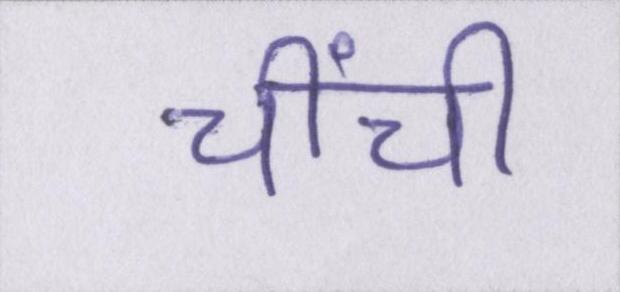 चींची